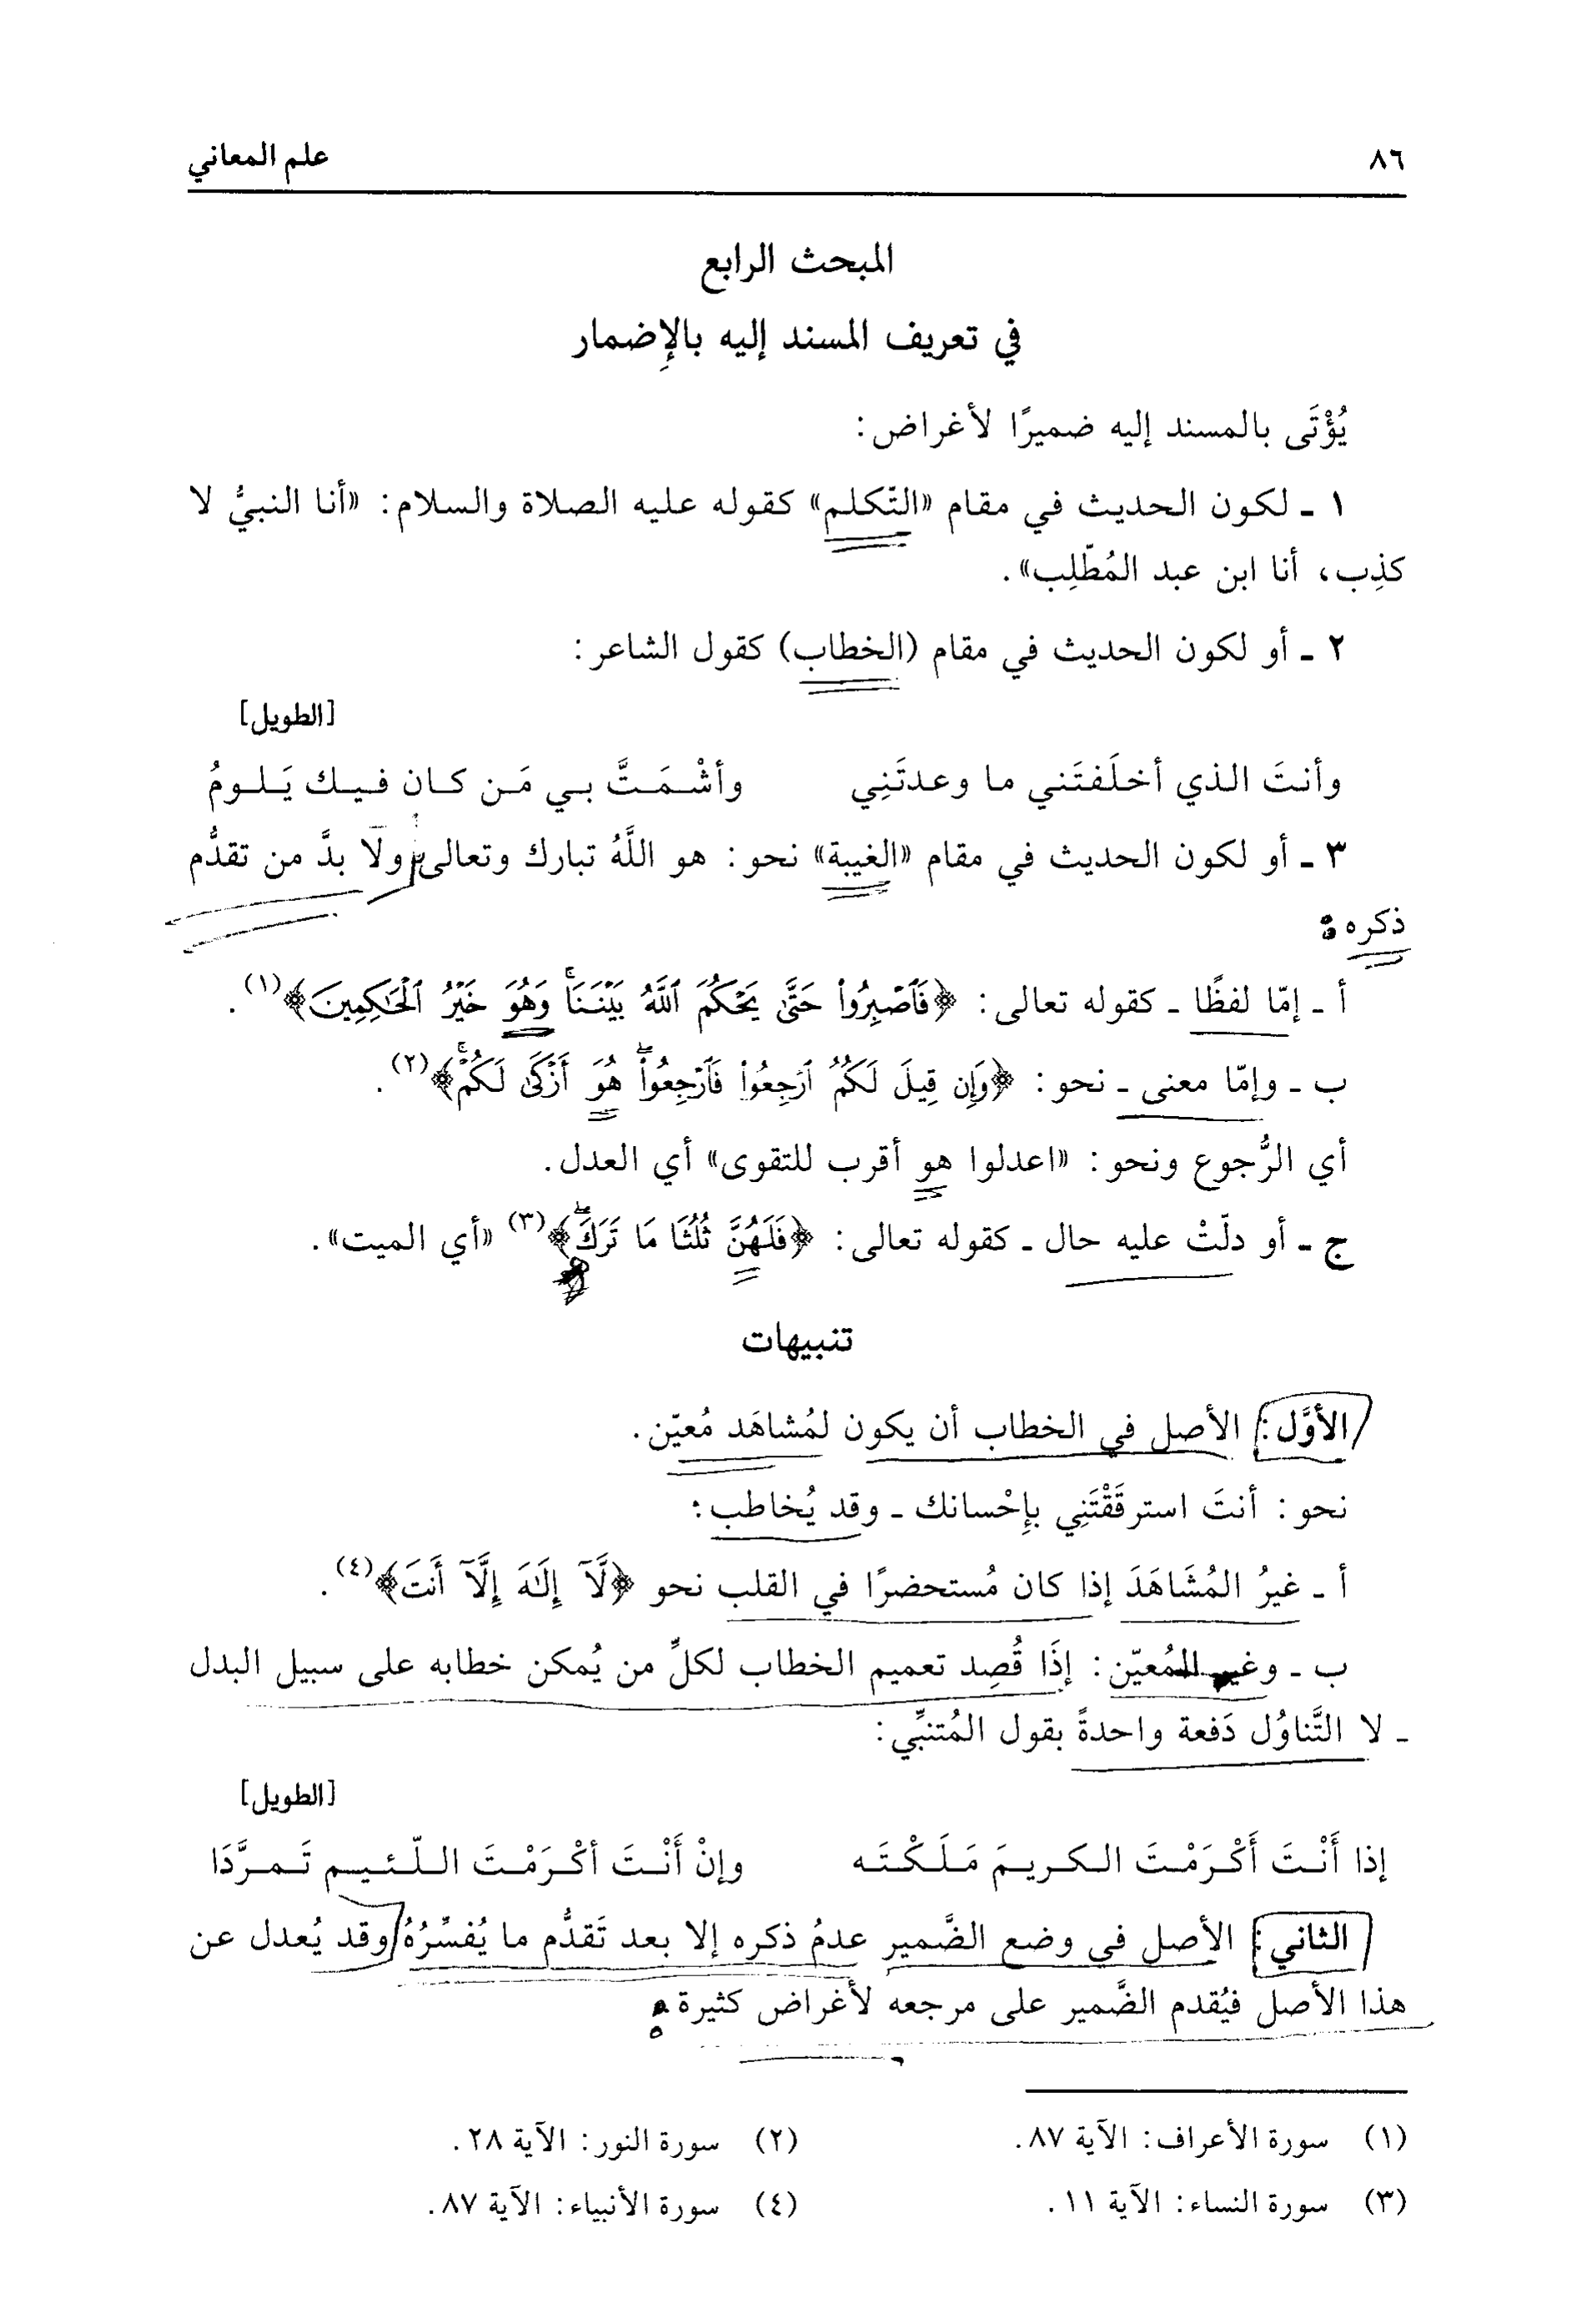 ٨٦ علم المعاني
المبحث الرابع
في تعريف المسند إليه بالإِضمار
يُؤْتَى بالمسند إليه ضميرًا لأغراض:
١ ـ لكون الحديث في مقام «التّكلم» كقوله عليه الصلاة والسلام: «أنا النبيُّ لا
كذِب، أنا ابن عبد المُطّلِب».
٢ ـ أو لكون الحديث في مقام (الخطاب) كقول الشاعر:
[الطويل]
وأنتَ الذي أخلَفتَني ما وعدتَنِي وأشْمَتَّ بي مَن كان فيك يَلومُ
٣ ـ أو لكون الحديث في مقام «الغيبة» نحو: هو اللَّهُ تبارك وتعالى ولَا بدَّ من تقدُّم
ذكره:
أ ـ إمّا لفظًا ـ كقوله تعالى: ﴿فَٱصْبِرُواْ حَتَّىٰ يَحْكُمَ ٱللَّهُ بَيْنَنَاۚ وَهُوَ خَيْرُ ٱلْحَٰكِمِينَ﴾(١).
ب ـ وإمّا معنى ـ نحو: ﴿وَإِن قِيلَ لَكُمُ ٱرْجِعُواْ فَٱرْجِعُواْۖ هُوَ أَزْكَىٰ لَكُمْۚ﴾(٢).
أي الرُّجوع ونحو: «اعدلوا هو أقرب للتقوى» أي العدل.
ج ـ أو دلّتْ عليه حال ـ كقوله تعالى: ﴿فَلَهُنَّ ثُلُثَا مَا تَرَكَۖ﴾(٣) «أي الميت».
تنبيهات
الأوَّل: الأصل في الخطاب أن يكون لمُشاهَد مُعيّن.
نحو: أنتَ استرقَقْتَنِي بإِحْسانك ـ وقد يُخاطب:
أ ـ غيرُ المُشَاهَدَ إذا كان مُستحضرًا في القلب نحو ﴿لَّآ إِلَٰهَ إِلَّآ أَنتَ﴾(٤).
ب ـ وغير المُعيّن: إذَا قُصِد تعميم الخطاب لكلِّ من يُمكن خطابه على سبيل البدل
ـ لا التَّناوُل دَفعة واحدةً بقول المُتنبِّي:
[الطويل]
إذا أَنْتَ أَكْرَمْتَ الكريمَ مَلَكْتَه وإنْ أَنْتَ أكْرَمْتَ اللّئيم تَمرَّدَا
الثاني: الأصل في وضع الضَّمير عدمُ ذكره إلا بعد تَقدُّم ما يُفسِّرُهُ وقد يُعدل عن
هذا الأصل فيُقدم الضَّمير على مرجعه لأغراض كثيرة
(١) سورة الأعراف: الآية ٨٧. (٢) سورة النور: الآية ٢٨.
(٣) سورة النساء: الآية ١١. (٤) سورة الأنبياء: الآية ٨٧.